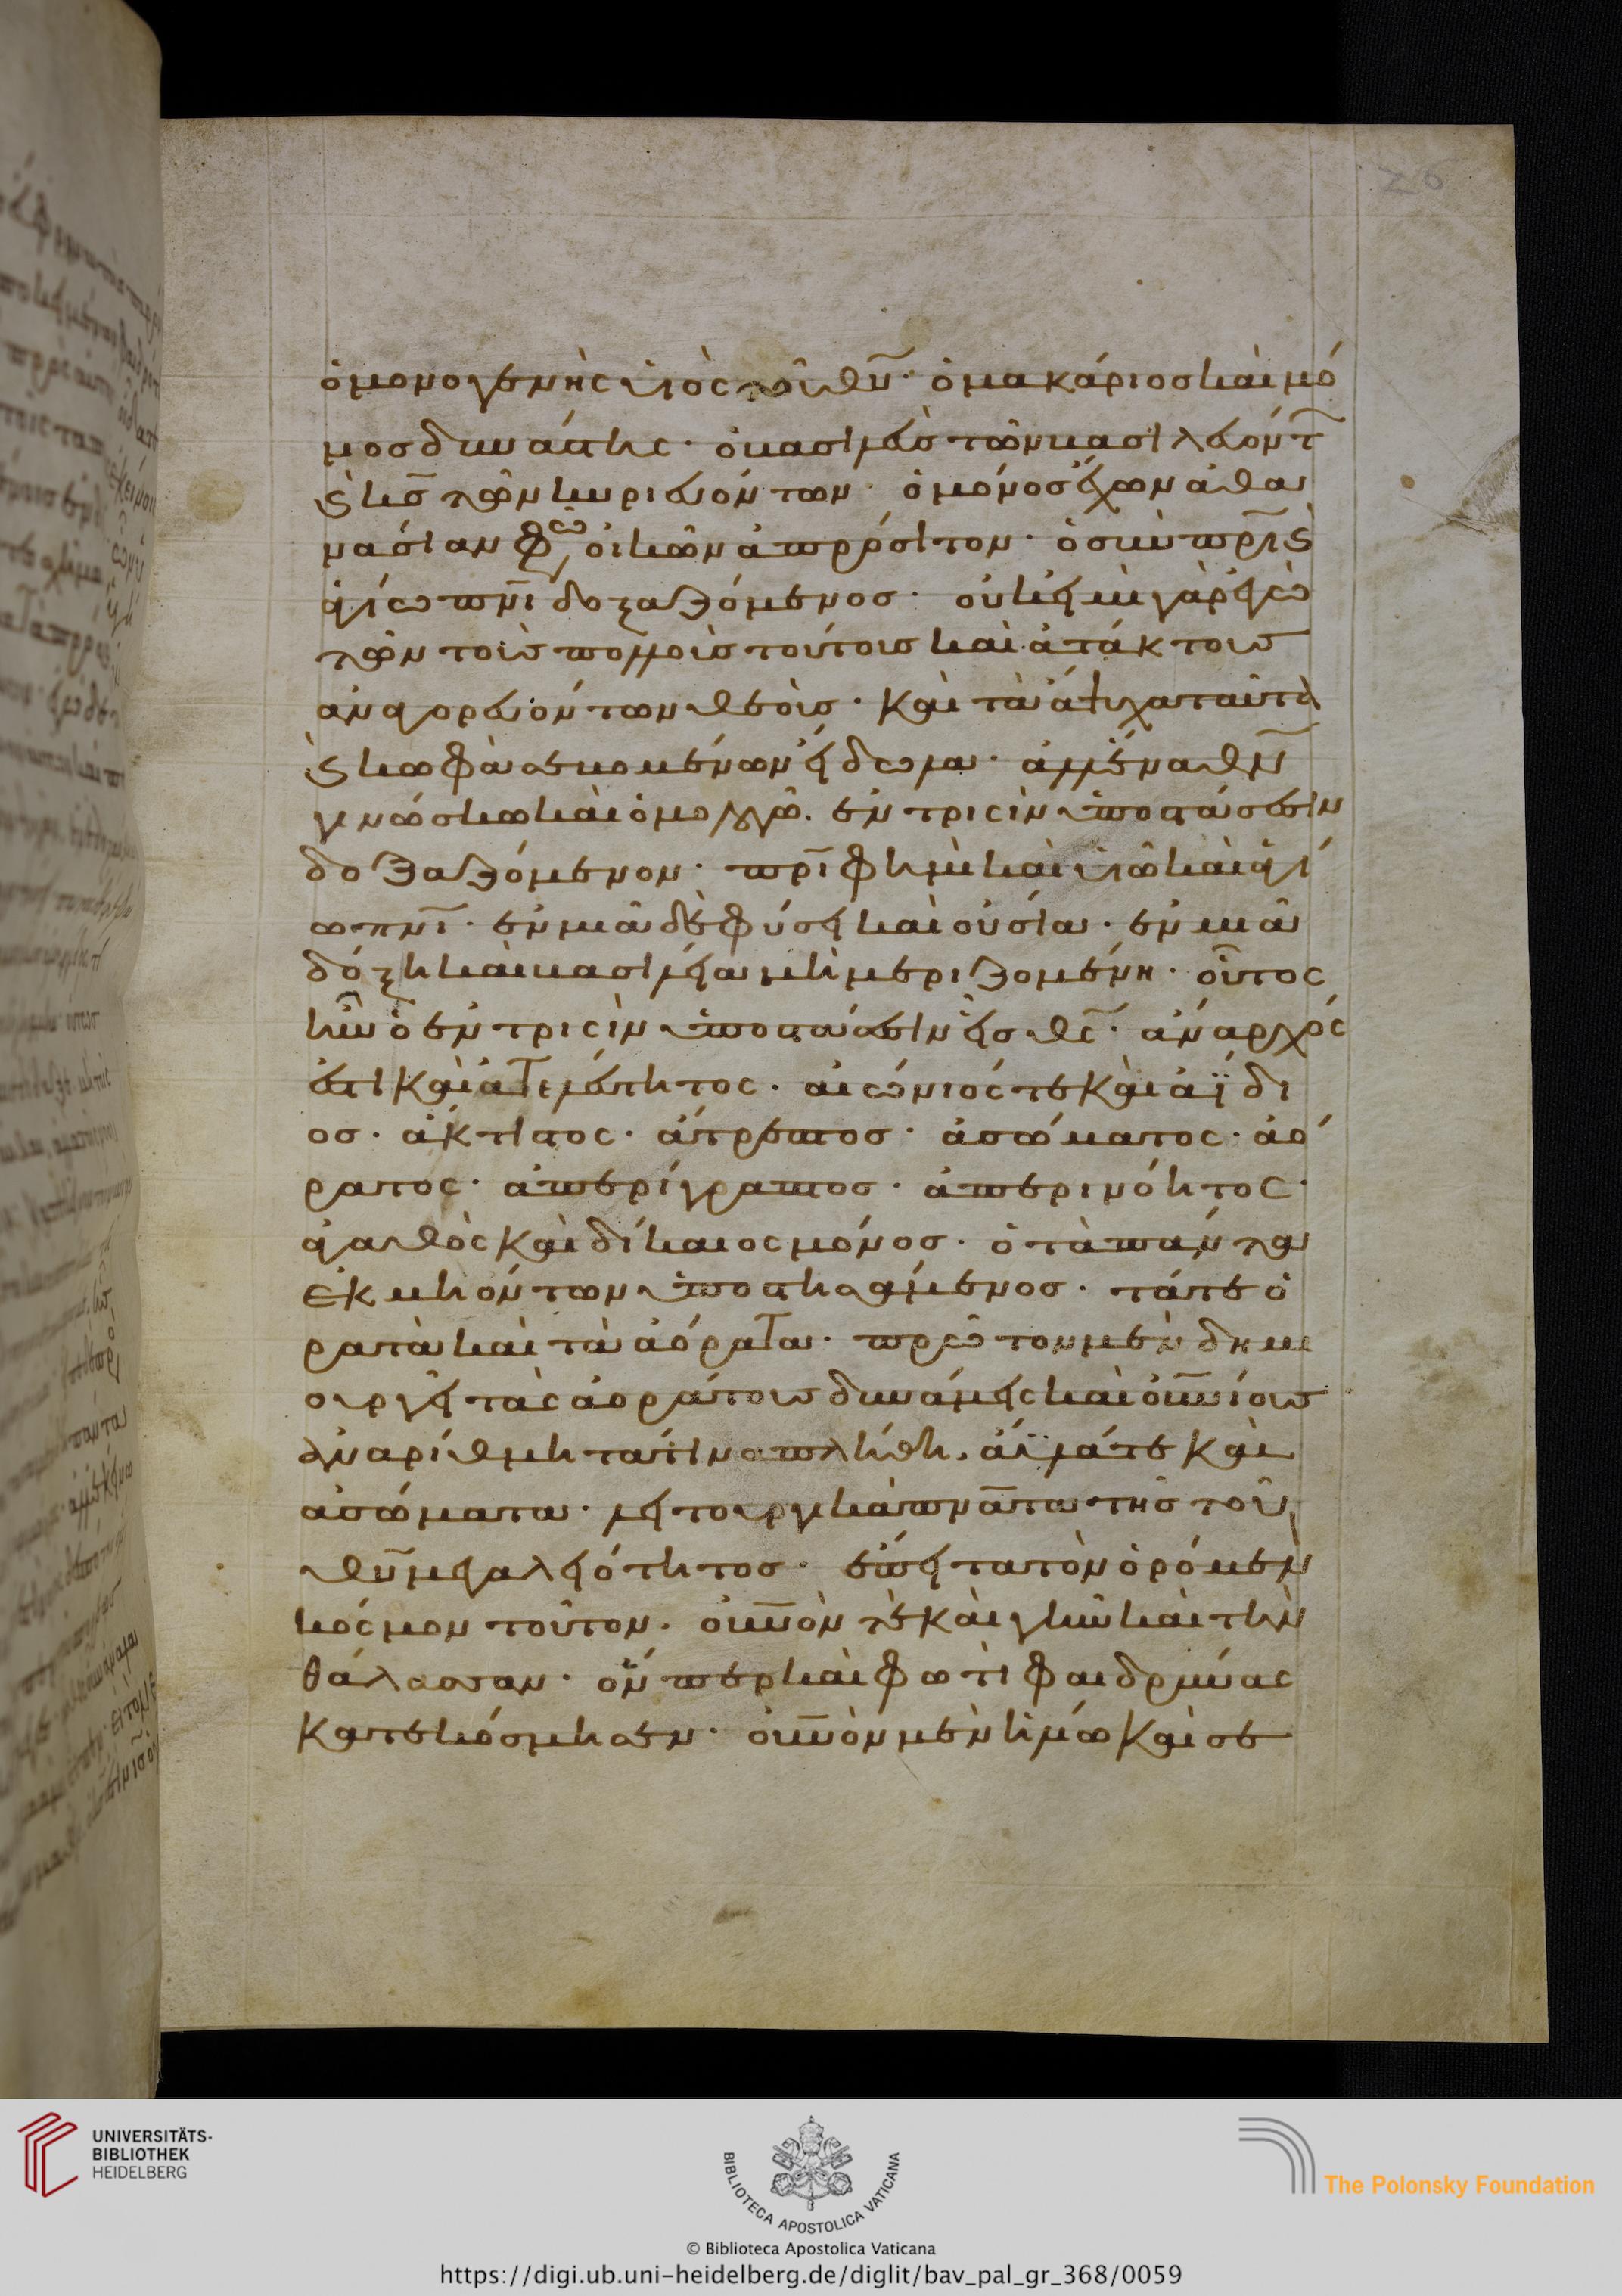 26
ὁ μονογενὴς υἱὸς τοῦ θ̅υ̅· ὁ μακάριος καὶ μό
νος δυνάστης· ὁ βασιλεὺς τῶν βασιλευόντ̅
ϗ κ̅ς̅ τῶν κυριευόντων· ὁ μόνος ἔχων ἀθα
νασίαν φῶς οἰκῶν ἀπρόσιτον· ὁ σὺν π̅ρ̅ι̅ ϗ
ἁγίω π̅ν̅ι̅ δοξαζόμενος· οὐκ εἰμὶ γὰρ ἐγὼ
τῶν τοῖς πολλοῖς τούτοις καὶ ἀτάκτοις
ἀναγορευόντων θεοῖς· καὶ τὰ ἄψυχα ταῦτα
ϗ κωφὰ σεβομένων εἴδωλα· ἀλλ' ἕνα θ̅ν̅
γινώσκω καὶ ὁμολογῶ. ἐν τρισὶν ὑποστάσεσιν
δοξαζόμενον· π̅ρ̅ι̅ φημὶ καὶ υἱῶ καὶ ἁγί
ω π̅ν̅ι̅· ἐν μιᾶ δὲ φύσει καὶ οὐσία· ἐν μιᾶ
δόξη καὶ βασιλεία μὴ μεριζομένη· οὗτος
οὖν ὁ ἐν τρισὶν ὑποστάσεσιν εἷς θ̅ς̅· ἄναρχός
ἐστι καὶ ἀτελεύτητος· αἰώνιός τε καὶ ἀΐδι
ος· ἄκτιστος· ἄτρεπτος· ἀσώματος· ἀό
ρατος· ἀπερίγραπτος· ἀπερινόητος·
ἀγαθὸς καὶ δίκαιος μόνος· ὁ τὰ πάντα
ἐκ μὴ ὄντων ὑποστησάμενος· τά τε ὁ
ρατὰ καὶ τὰ ἀόρατα· πρῶτον μὲν δημι
ουργεῖ τὰς ἀοράτους δυνάμεις καὶ ο̅υ̅ν̅ίους
ἀναρίθμητά τινα πλήθη. ἄϋλά τε καὶ
ἀσώματα· λειτουργικὰ π̅ν̅α̅τα τῆς τοῦ
θ̅υ̅ μεγαλειότητος· ἔπειτα τὸν ὁρόμεν
κόσμον τοῦτον· ο̅υ̅ν̅ὸν τὲ καὶ γῆν καὶ τὴν
θάλασσαν· ὅν περ καὶ φωτὶ φαιδρύνας
κατεκόσμησεν· ο̅υ̅ν̅ὸν μὲν ἡλίω καὶ σε
UNIVERSITÄTS-
BIBLIOTHEK
HEIDELBERG
BIBLIOTECA APOSTOLICA VATICANA
The Polonsky Foundation
© Biblioteca Apostolica Vaticana
https://digi.ub.uni-heidelberg.de/diglit/bav_pal_gr_368/0059